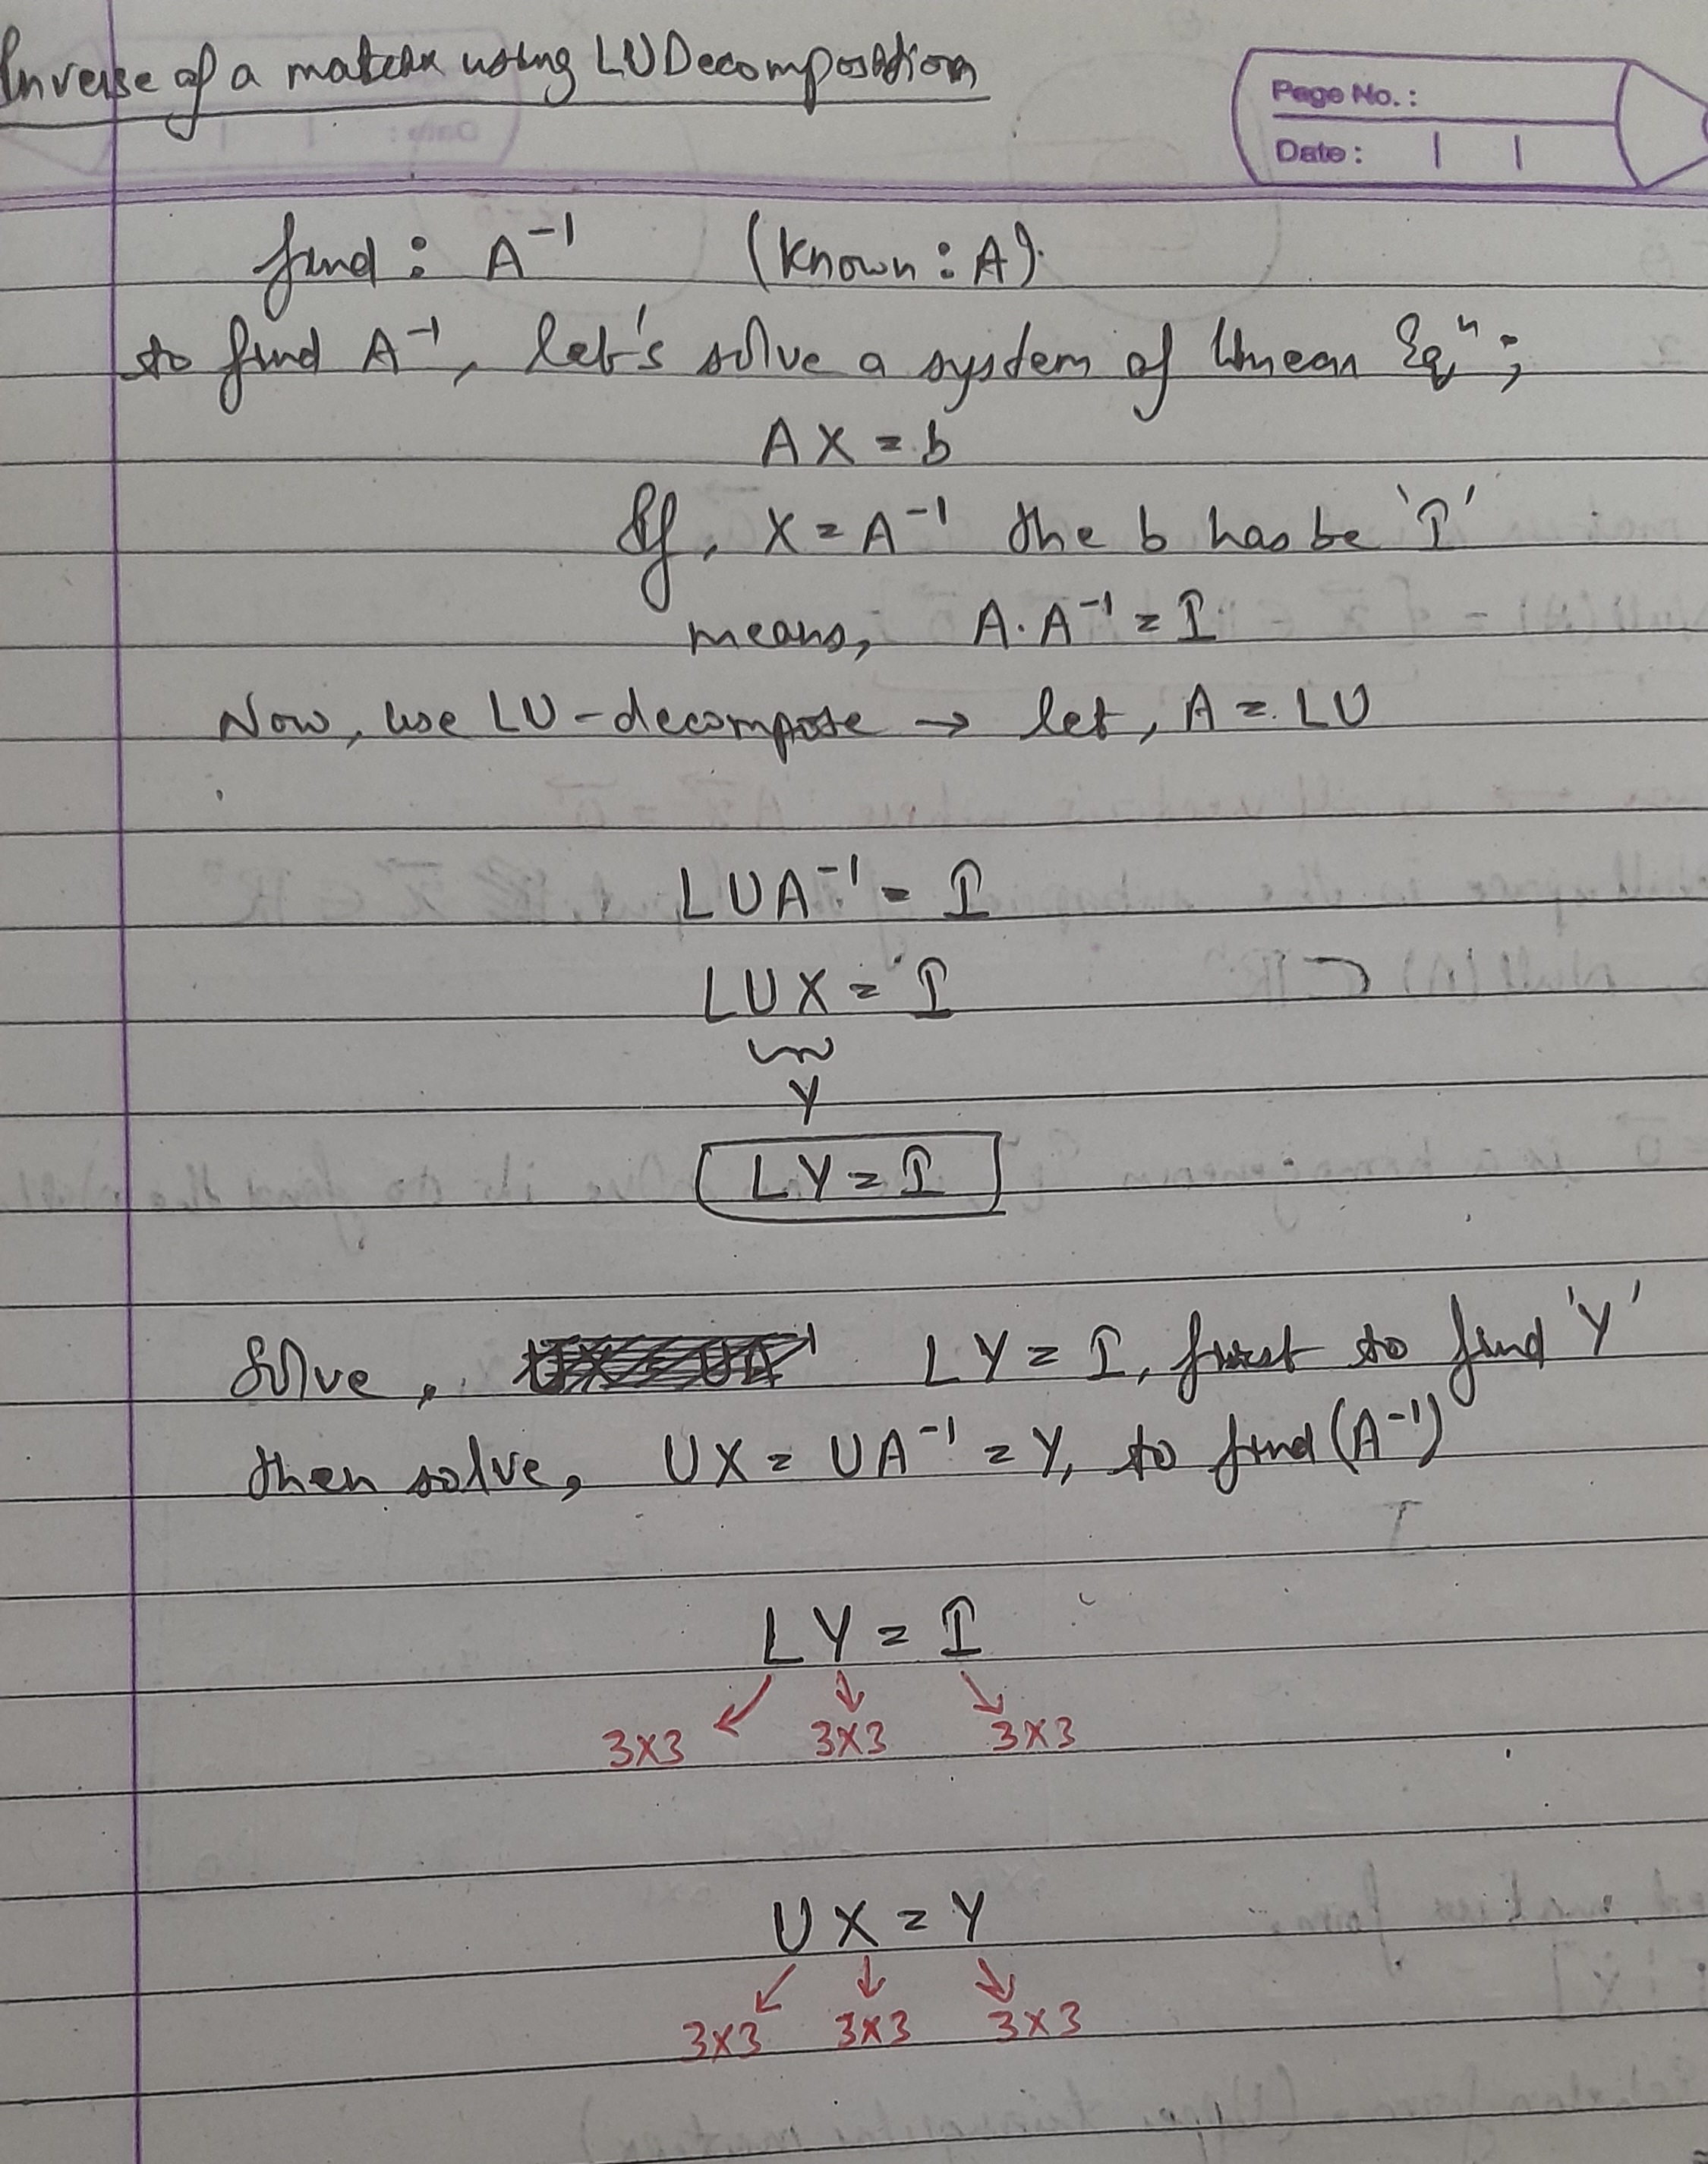 Inverse of a matrix using LU Decomposition
Page No. :
Date :
find : A⁻¹ (known : A).
to find A⁻¹, let's solve a system of linear Eqⁿ ;
AX = b
If, X = A⁻¹ the b has be 'I'
means, A.A⁻¹ = I
Now, use LU-decompose → let, A = LU
LUA⁻¹ = I
LUX = I
Y
LY = I
Solve, LY = I, first to find 'Y'
then solve, UX = UA⁻¹ = Y, to find (A⁻¹)
LY = I
3x3 3x3 3x3
UX = Y
3x3 3x3 3x3